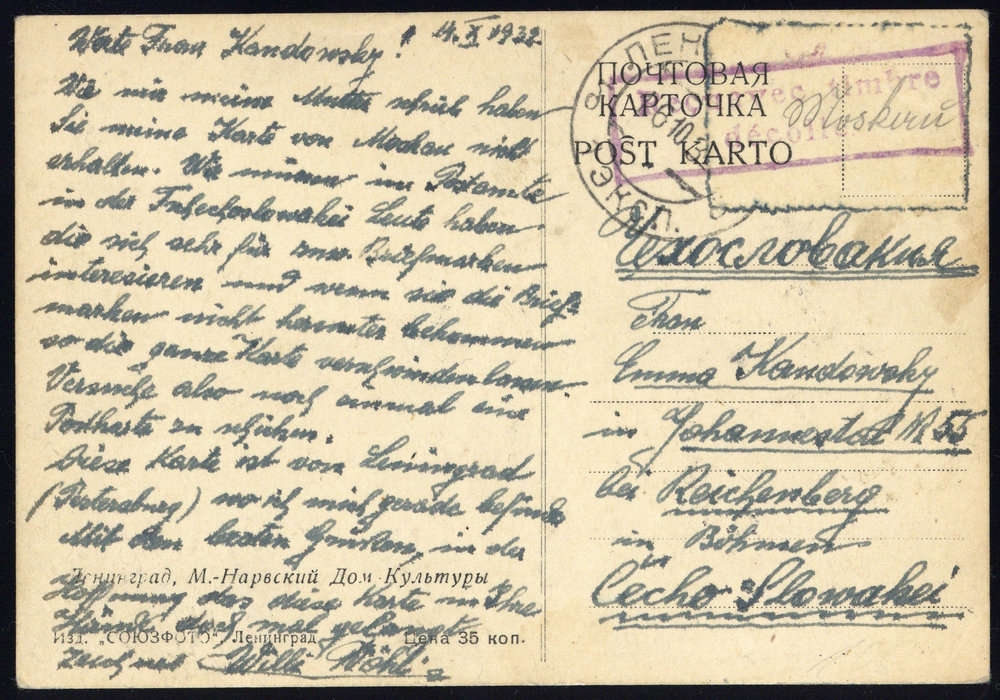 Werte Frau Kandowsky! 14. X. 1932
Wie mir meine Mutter schrieb haben
Sie meine Karte von Moskau nicht
erhalten. Wir müssen im Postamte
in der Tschechoslowakei Leute haben
die sich sehr für Briefmarken
interesieren und wenn sie die Brief-
marken nicht herunter bekommen
so die ganze Karte verschwinden lassen
Versuche also noch einmal eine
Postkarte zu schicken.
Diese Karte ist von Leningrad
(Petersburg) wo ich mich gerade befinde
Mit den besten Grüßen, in der
Ленинград, М.-Нарвский Дом Культуры
Hoffnung das diese Karte in Ihre
Hände doch mal gelangt
Изд. "СОЮЗФОТО" Ленинград Цена 35 коп.
Willi
ЛЕН
ЭКСП.
ПОЧТОВАЯ
КАРТОЧКА
POST KARTO
avec timbre
décollé
Moskau
Чехословакия
Frau
Emma Kandowsky
in Johannestal N 55
bei Reichenberg
in Böhmen
Cecho-Slowakei